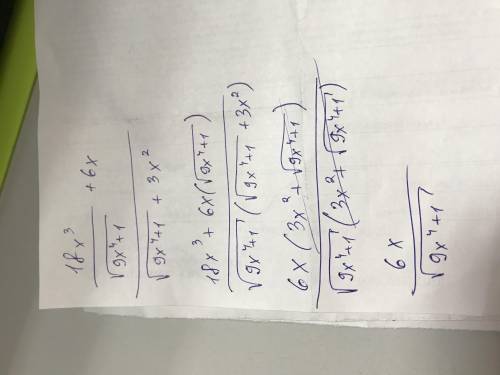 18x³ / √(9x⁴+1) + 6x
√(9x⁴+1) + 3x²
18x³ + 6x(√(9x⁴+1))
√(9x⁴+1) (√(9x⁴+1) + 3x²)
6x (3x² + √(9x⁴+1))
√(9x⁴+1) (3x² + √(9x⁴+1))
6x
√(9x⁴+1)